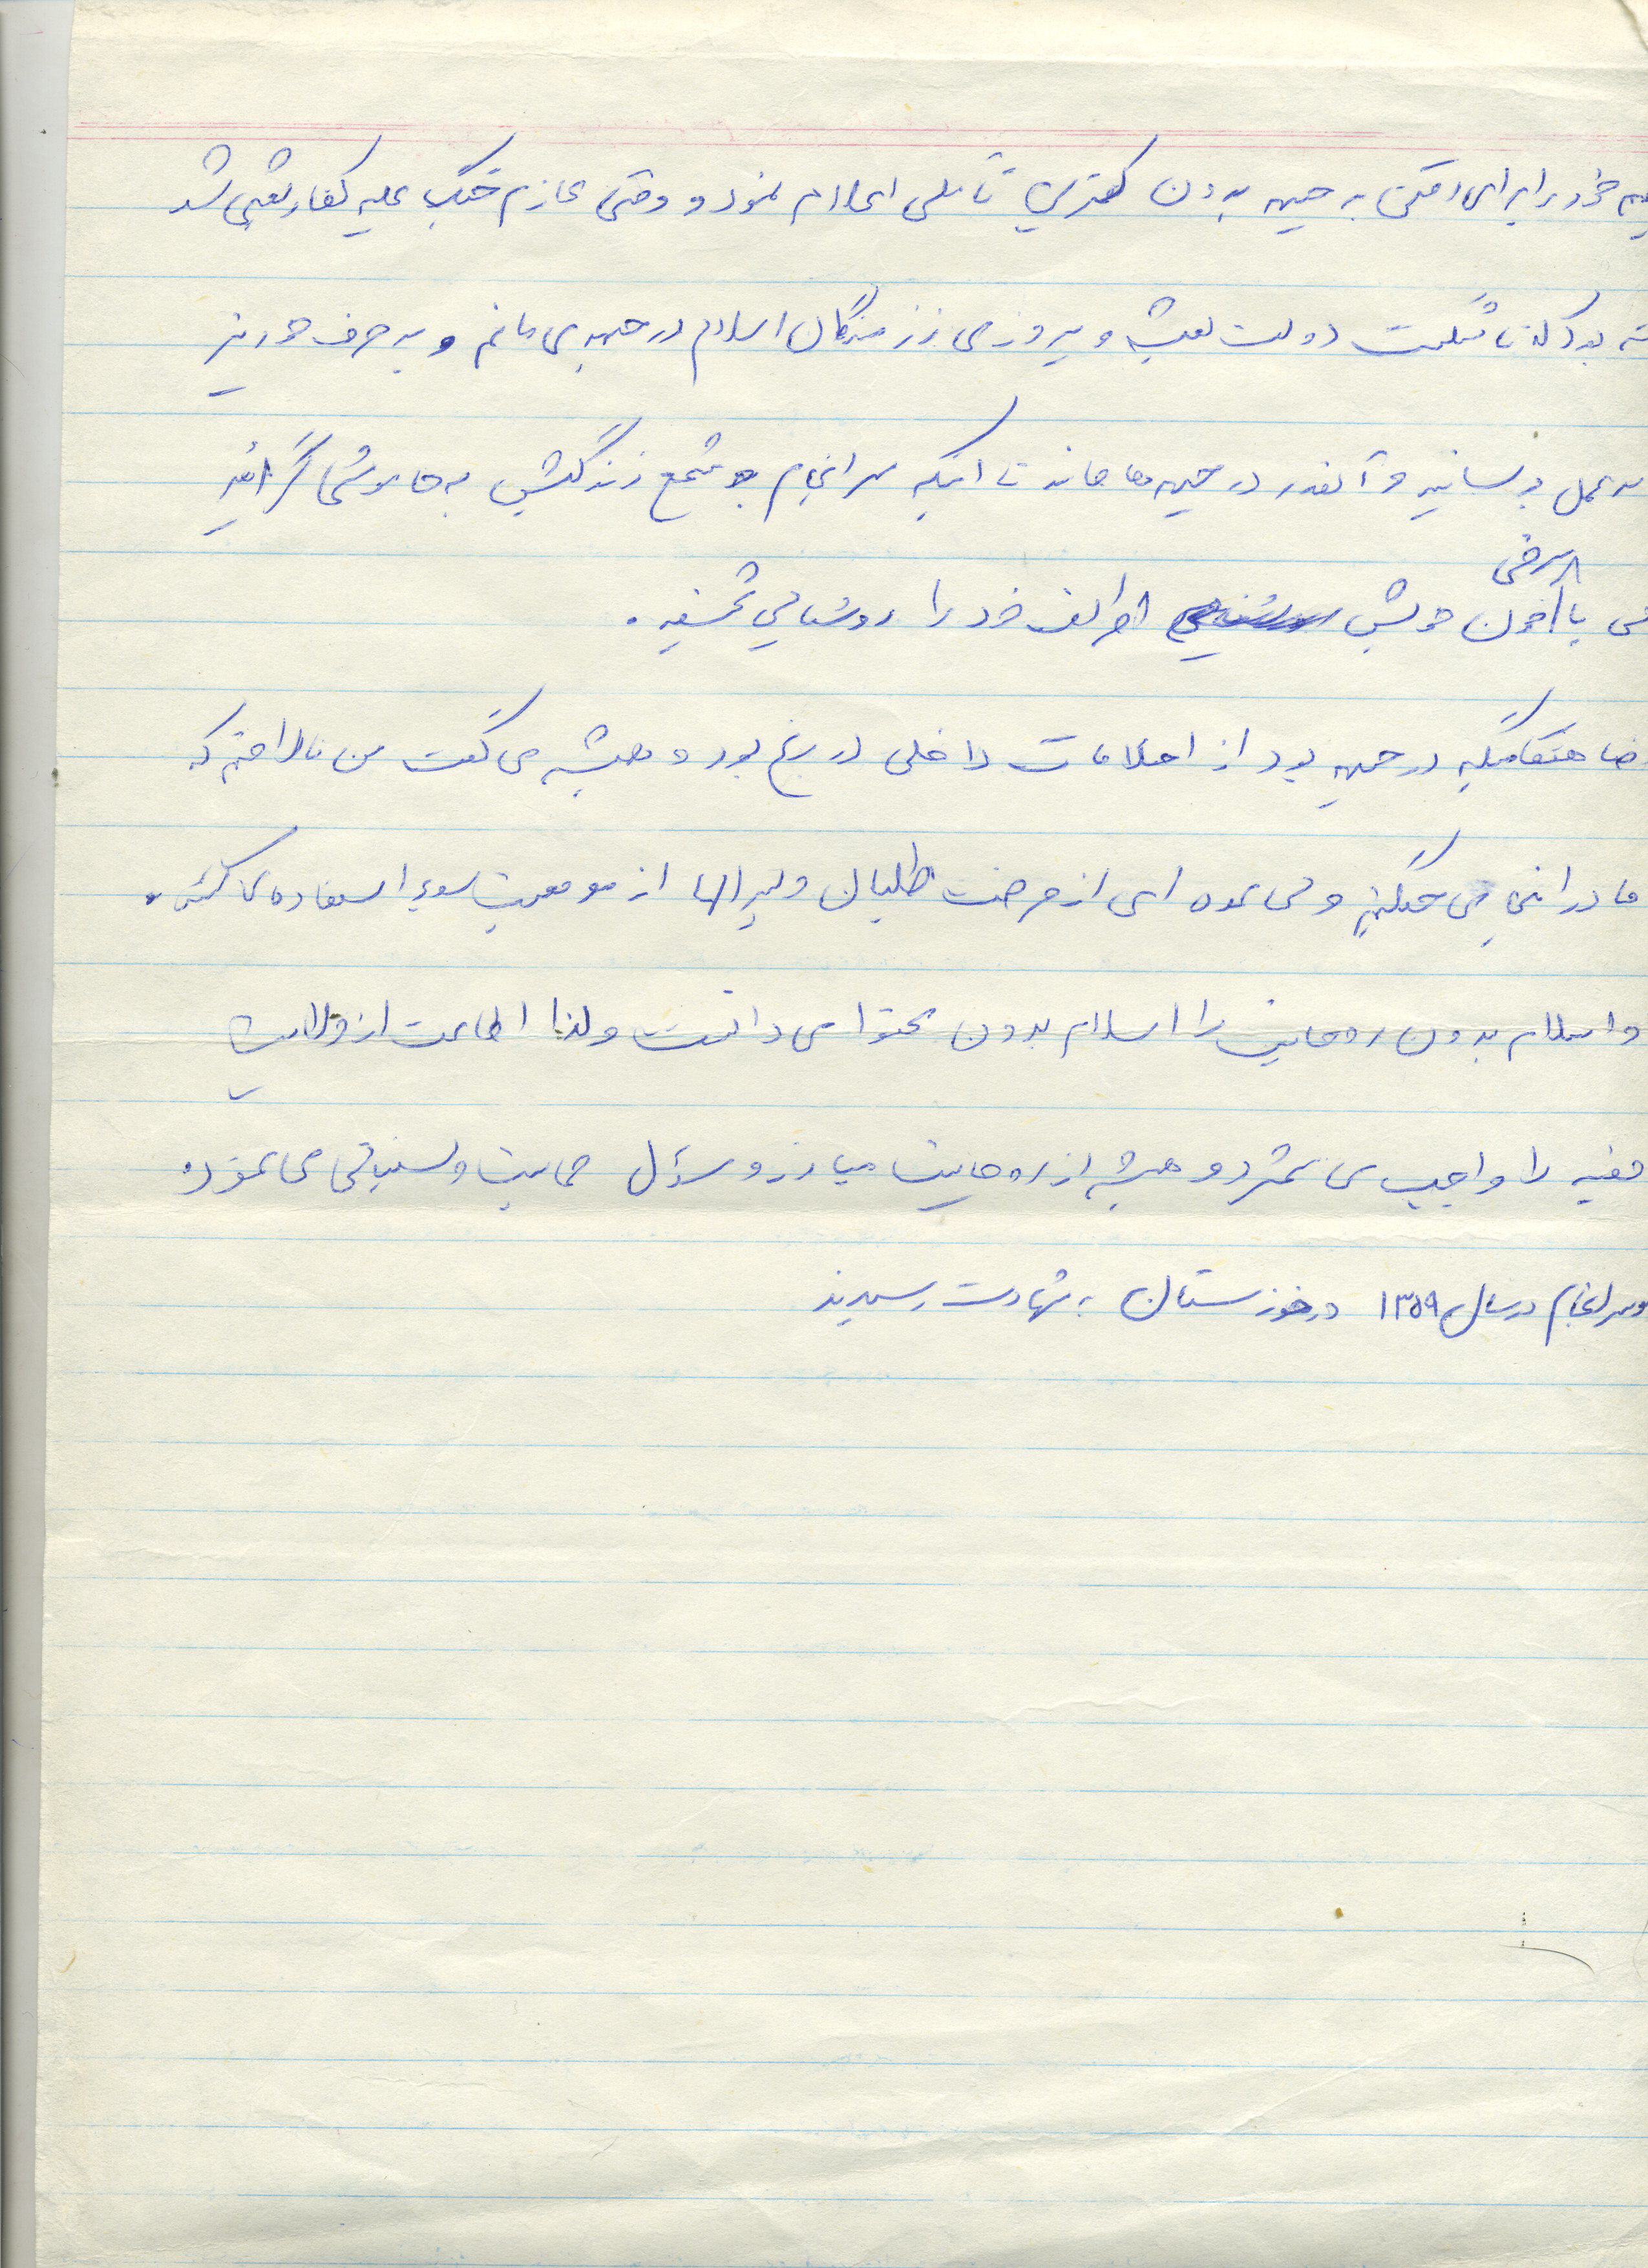 خود را برای رفتن به جبهه بدون کمترین تأملی اعلام نمود و وقتی عازم جنگ علیه کفار بعثی شد
بود که تا شکست دولت بعثی و پیروزی رزمندگان اسلام در جبهه می مانم و به حرف خود نیز
عمل پوسانید و آنقدر در جبهه ها ماند تا اینکه سرانجام شمع زندگیش به خاموشی گرائید
با سرخی خون خویش اطراف خود را روشنایی بخشید.
هنگامیکه در جبهه بود از اختلافات داخلی در رنج بود و همیشه می گفت من ناراحتم که
ما در اینجا می جنگیم ولی عده ای از فرصت طلبان و لیبرالها از موقعیت سوء استفاده می کنند.
و اسلام بدون روحانیت را اسلام بدون محتوا می دانست و لذا اطاعت از ولایت
فقیه را واجب می شمرد و همیشه از روحانیت مبارز و مسئول حمایت و پشتیبانی می نمود.
و سرانجام در سال ۱۳۵۹ در خوزستان به شهادت رسیدند